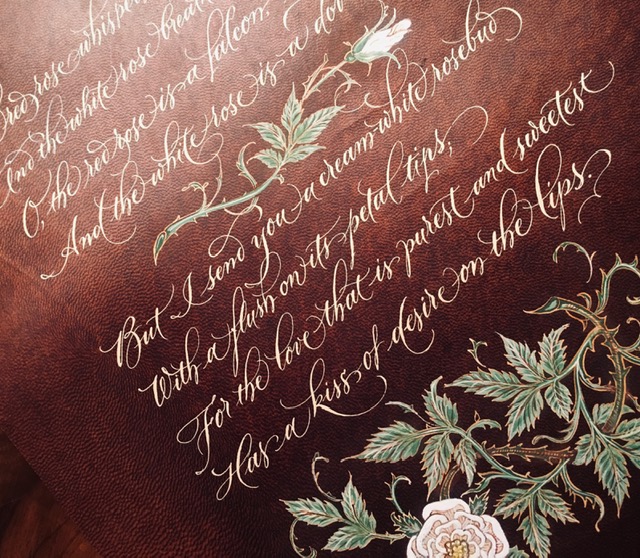 red rose whispers
And the white rose breathes
O, the red rose is a falcon,
And the white rose is a dove
But I send you a cream-white rosebud
With a flush on its petal tips;
For the love that is purest and sweetest
Has a kiss of desire on the lips.